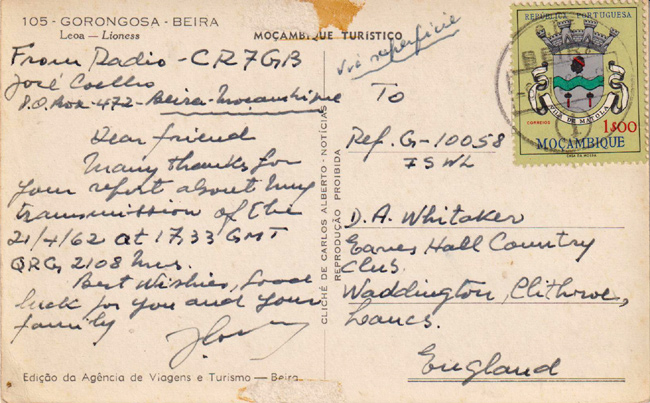 105 - GORONGOSA - BEIRA
Leoa — Lioness
MOÇAMBIQUE TURÍSTICO
Via superfície
From Radio - CR7GB
José Coelho
P.O. Box - 472 - Beira - Mocambique
Dear friend
Many thanks for
your report about my
transmission of the
21/4/62 at 17,33 GMT
QRG 2108
Best Wishes, Good
luck for you and your
family
Edição da Agência de Viagens e Turismo — Beira
CLICHÉ DE CARLOS ALBERTO - NOTÍCIAS
REPRODUÇÃO PROIBIDA
REPÚBLICA PORTUGUESA
VILA DE MATOLA
CORREIOS
1$00
MOÇAMBIQUE
CASA DA MOEDA
BEIRA
To
Ref. G-10058
7 SWL
D.A. Whitaker
Eaves Hall Country
Club.
Waddington, Clithroe,
Lancs.
England